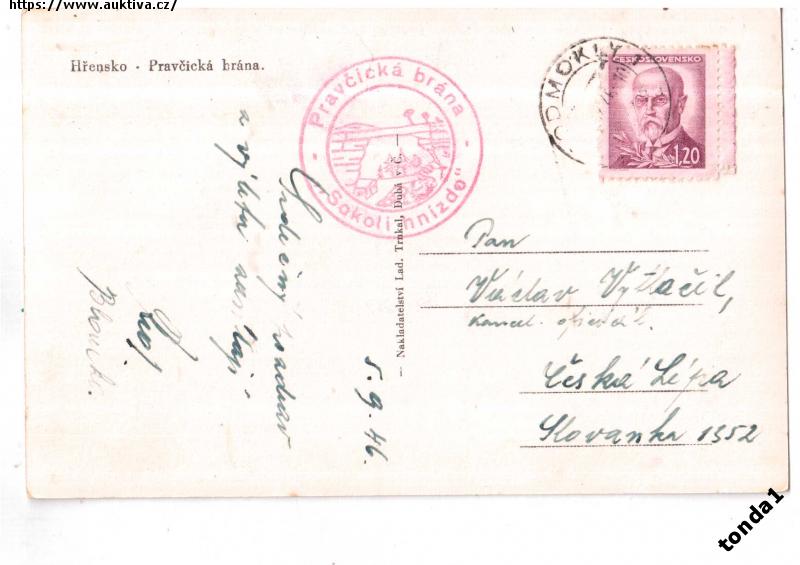 https://www.auktiva.cz/
Hřensko - Pravčická brána.
- Pravčická brána -
"Sokolí hnízdo"
PODMOKLY
ČESKOSLOVENSKO
1,20
— Nakladatelství Lad. Trnkal, Dubá v Č. —
Srdečný pozdrav
a výletu zasílají
5. 9. 46.
Pan
Václav Vytlačil,
kancel. oficiál.
Česká Lípa
Slovanka 1352
tonda1